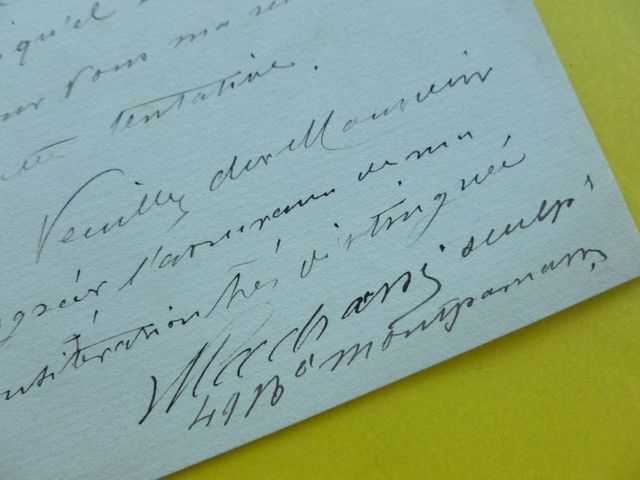 qu'il
vous ma
tentative.
Veuillez cher Monsieur
agréer l'assurance de ma
considération très distinguée
sculpr
49 Bd Montparnasse